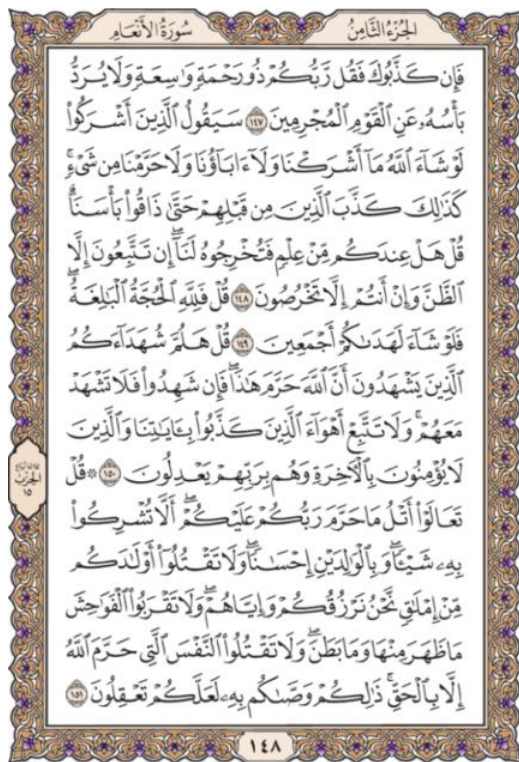 الجُزءُ الثَّامِنُ سُورَةُ الأَنْعَامِ
فَإِن كَذَّبُوكَ فَقُل رَّبُّكُمْ ذُو رَحْمَةٍ وَٰسِعَةٍ وَلَا يُرَدُّ
بَأْسُهُۥ عَنِ ٱلْقَوْمِ ٱلْمُجْرِمِينَ ١٤٧ سَيَقُولُ ٱلَّذِينَ أَشْرَكُوا۟
لَوْ شَآءَ ٱللَّهُ مَآ أَشْرَكْنَا وَلَآ ءَابَآؤُنَا وَلَا حَرَّمْنَا مِن شَىْءٍ ۚ
كَذَٰلِكَ كَذَّبَ ٱلَّذِينَ مِن قَبْلِهِمْ حَتَّىٰ ذَاقُوا۟ بَأْسَنَا ۗ
قُلْ هَلْ عِندَكُم مِّنْ عِلْمٍ فَتُخْرِجُوهُ لَنَآ ۖ إِن تَتَّبِعُونَ إِلَّا
ٱلظَّنَّ وَإِنْ أَنتُمْ إِلَّا تَخْرُصُونَ ١٤٨ قُلْ فَلِلَّهِ ٱلْحُجَّةُ ٱلْبَٰلِغَةُ ۖ
فَلَوْ شَآءَ لَهَدَىٰكُمْ أَجْمَعِينَ ١٤٩ قُلْ هَلُمَّ شُهَدَآءَكُمُ
ٱلَّذِينَ يَشْهَدُونَ أَنَّ ٱللَّهَ حَرَّمَ هَٰذَا ۖ فَإِن شَهِدُوا۟ فَلَا تَشْهَدْ
مَعَهُمْ ۚ وَلَا تَتَّبِعْ أَهْوَآءَ ٱلَّذِينَ كَذَّبُوا۟ بِـَٔايَٰتِنَا وَٱلَّذِينَ
لَا يُؤْمِنُونَ بِٱلْـَٔاخِرَةِ وَهُم بِرَبِّهِمْ يَعْدِلُونَ ١٥٠ ۞ قُلْ
تَعَالَوْا۟ أَتْلُ مَا حَرَّمَ رَبُّكُمْ عَلَيْكُمْ ۖ أَلَّا تُشْرِكُوا۟
بِهِۦ شَيْـًٔا ۖ وَبِٱلْوَٰلِدَيْنِ إِحْسَٰنًا ۖ وَلَا تَقْتُلُوٓا۟ أَوْلَٰدَكُم
مِّنْ إِمْلَٰقٍ ۖ نَّحْنُ نَرْزُقُكُمْ وَإِيَّاهُمْ ۖ وَلَا تَقْرَبُوا۟ ٱلْفَوَٰحِشَ
مَا ظَهَرَ مِنْهَا وَمَا بَطَنَ ۖ وَلَا تَقْتُلُوا۟ ٱلنَّفْسَ ٱلَّتِى حَرَّمَ ٱللَّهُ
إِلَّا بِٱلْحَقِّ ۚ ذَٰلِكُمْ وَصَّىٰكُم بِهِۦ لَعَلَّكُمْ تَعْقِلُونَ ١٥١
الحِزْب
١٥
١٤٨